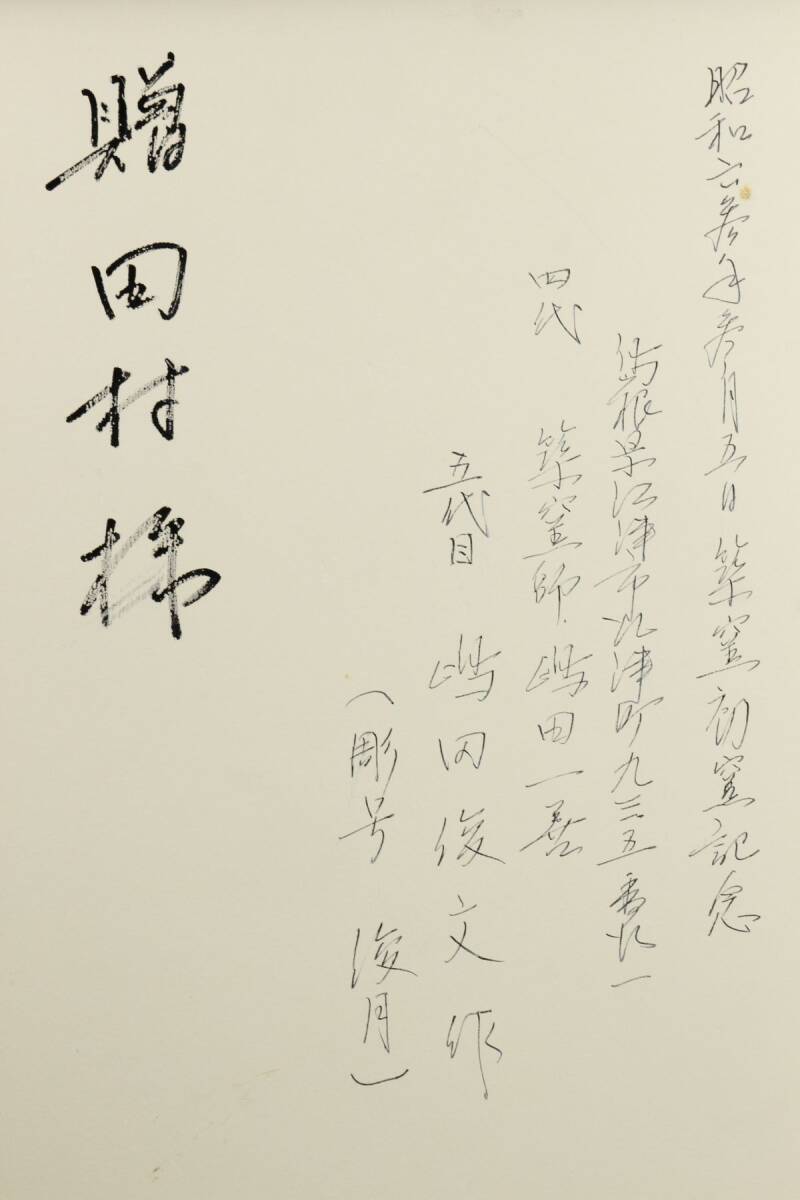 昭和六参年参月五日築窯初窯記念
嶋根県江津市渡津町九三五番地一
四代 築窯師 嶋田一
五代目 嶋田俊文作
（彫号 浚月）
贈田村様